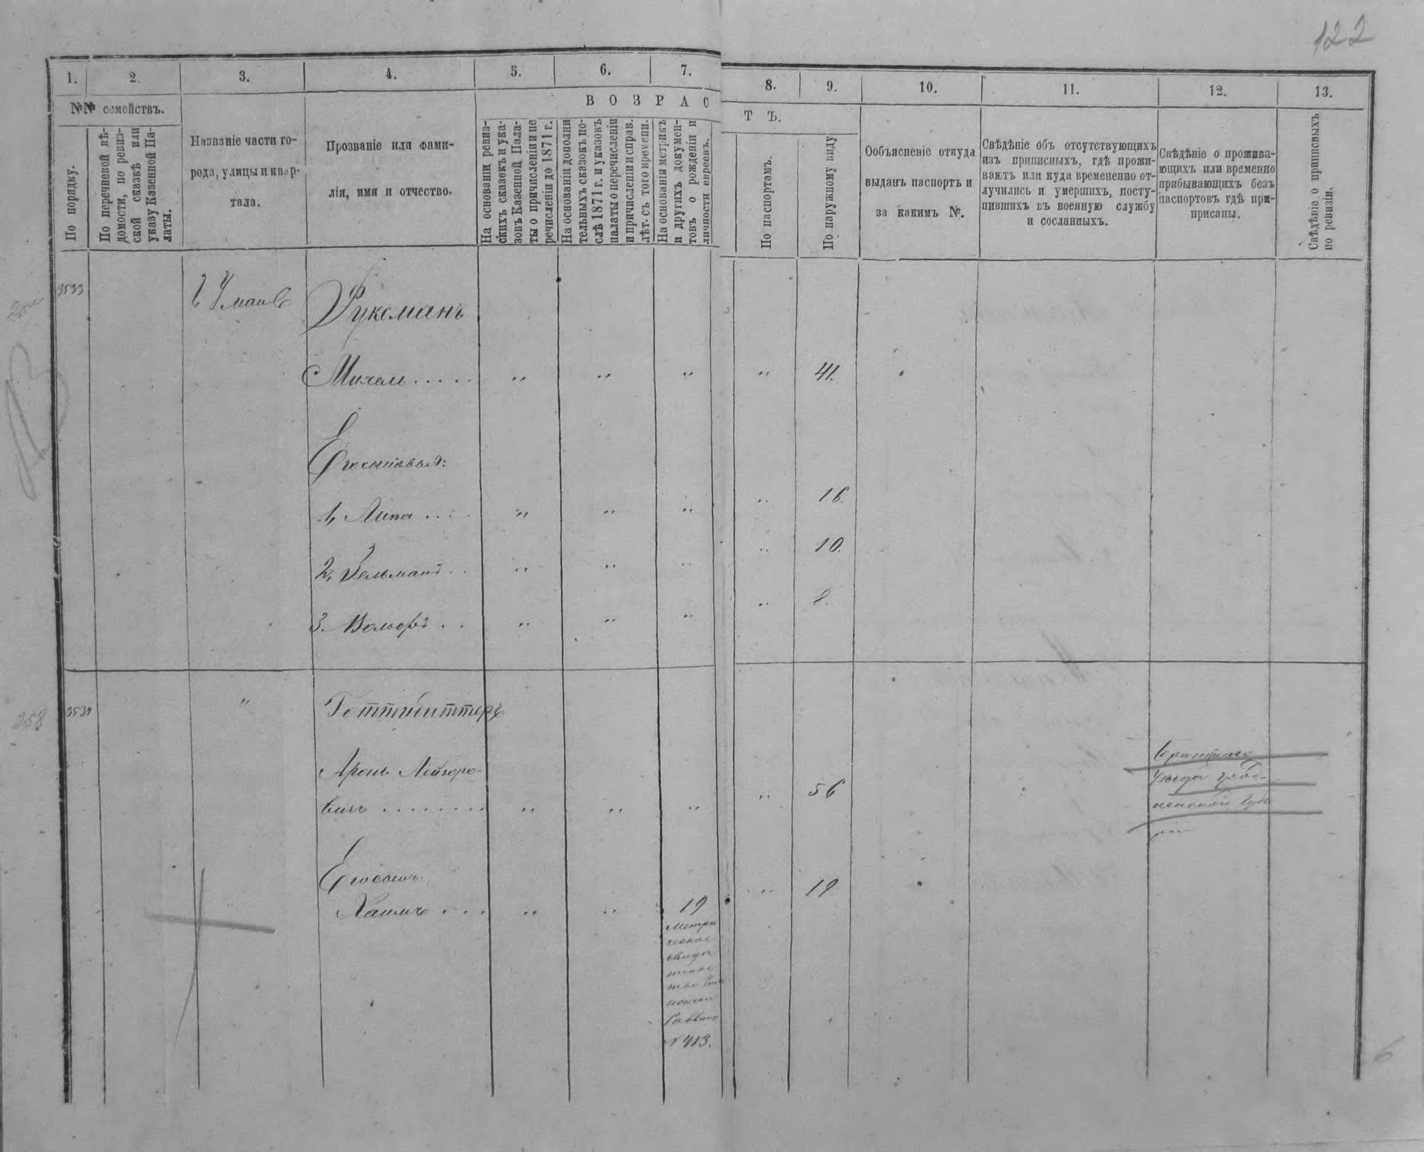 122
1. 2. 3. 4. 5. 6. 7. 8. 9. 10. 11. 12. 13.
№№ семействъ.
По порядку.
По перечневой вѣ-
домости, по ревиз-
ской сказкѣ или
указу Казенной Па-
латы.
Названіе части го-
рода, улицы и квар-
тала.
Прозваніе или фами-
лія, имя и отчество.
ВОЗРАСТЪ.
На основаніи ревиз-
скихъ сказекъ и ука-
зовъ Казенной Пала-
ты о причисленіи и пе
речисленіи до 1871 г.
На основаніи дополни
тельныхъ сказокъ по-
слѣ 1871 г. и указокъ
палаты о перечисленіи
и причисленіи и справ.
лѣт. съ того времени.
На основаніи метрикъ
и другихъ докумен-
товъ о рожденіи и
личности евреевъ.
По паспортамъ.
По наружному виду
Ообъясненіе откуда
выданъ паспортъ и
за какимъ №.
Свѣдѣніе объ отсутствующихъ
изъ приписныхъ, гдѣ прожи-
ваютъ или куда времененно от-
лучились и умершихъ, посту-
пившихъ въ военную службу
и сосланныхъ.
Свѣдѣніе о прожива-
ющихъ или временно
прибывающихъ безъ
паспортовъ гдѣ при-
приписаны.
Свѣдѣніе о приписныхъ
по ревизіи.
3533 Фуксманъ
Михель ..... " " " " 41.
Его сыновья:
1, Липа .... " " " " 16.
2, Зельманъ .. " " " " 10.
3. Вольфъ .. " " " " 8.
258 3534 "
Аронъ Лейзоро-
вичъ ........ " " " " 56
уѣзда
Его сынъ
Хаимъ .... " " 19 " 19
Метри
ческое
свидѣ
тельс
тво
Раввина
№ 413.
6